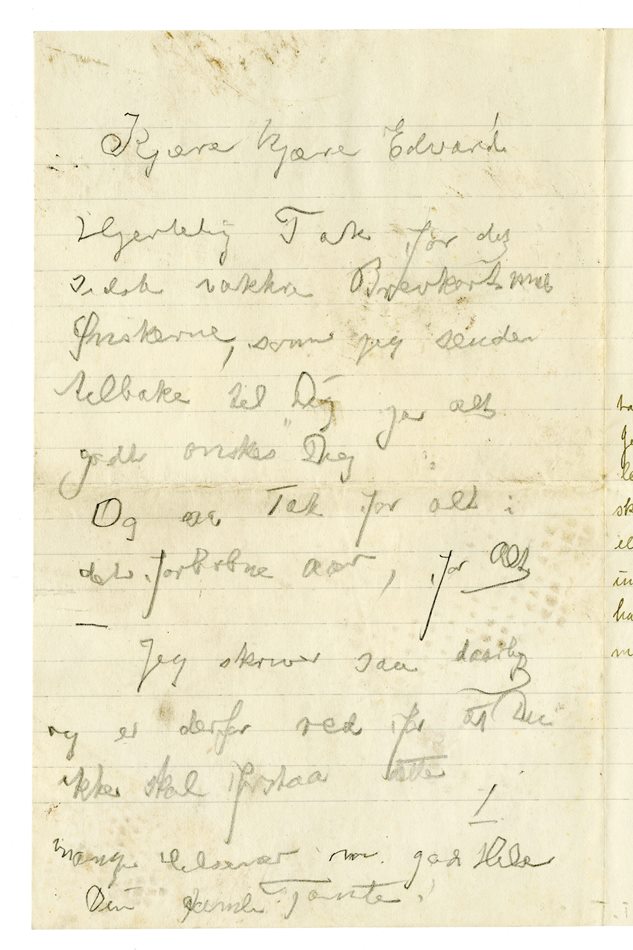 Kjære kjære Edvard
Hjertelig Tak for det
sidste vakkre Brevkort med
Ønskerne, som jeg sender
tilbake til Dig jar alt
godt ønskes Dig
Og saa Tak for alt i
det forløbne aar, for Alt
Jeg skriver saa daarlig
og er derfor ræd for at Du
ikke skal forstaa dette
!
mange Hilsener m. god Helse
Din gamle Tante.